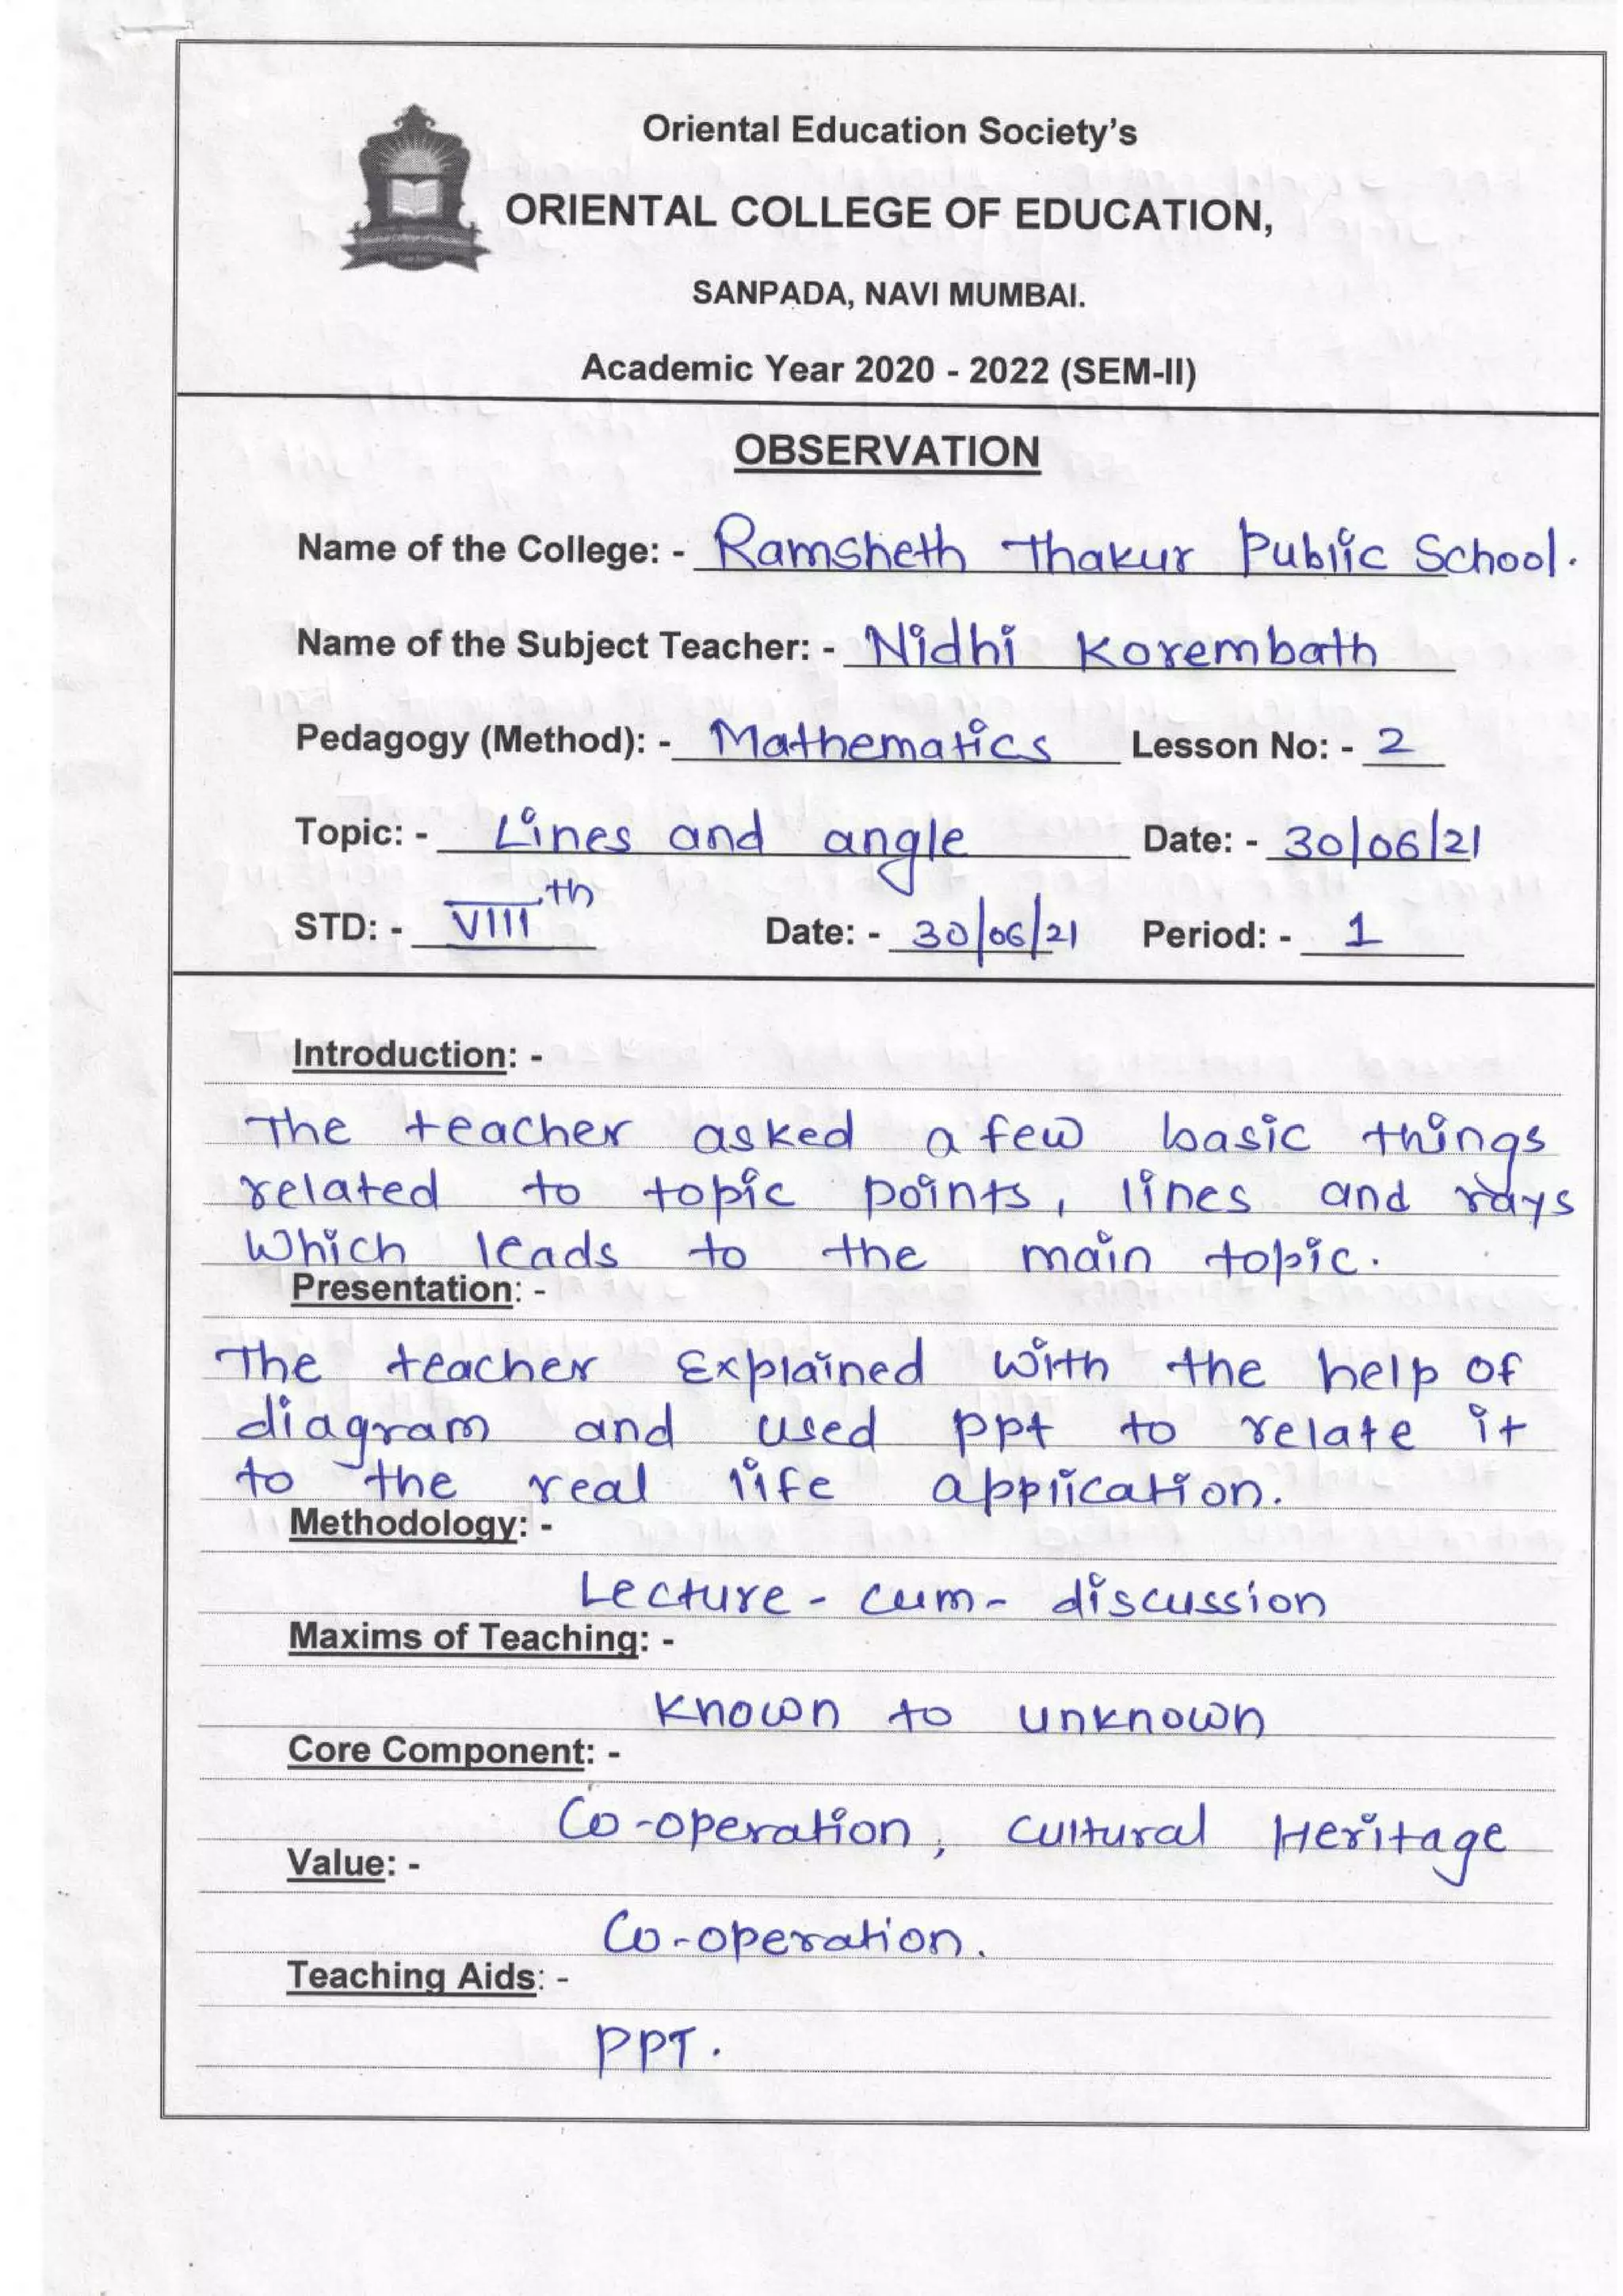 Oriental Education Society's
ORIENTAL COLLEGE OF EDUCATION,
SANPADA, NAVI MUMBAI.
Academic Year 2020 - 2022 (SEM-II)
OBSERVATION
Name of the College: - Ramsheth Thakur Public School.
Name of the Subject Teacher: - Nidhi Korembath
Pedagogy (Method): - Mathematics Lesson No: - 2
Topic: - Lines and angle Date: - 30/06/21
STD: - VIII th Date: - 30/06/21 Period: - 1
Introduction: -
The teacher asked a few basic things
related to topic points, lines and rays
Which leads to the main topic.
Presentation: -
The teacher Explained with the help of
diagram and used ppt to relate it
to the real life application.
Methodology: -
Lecture - cum - discussion
Maxims of Teaching: -
Known to unknown
Core Component: -
Co-operation, Cultural Heritage
Value: -
Co-operation.
Teaching Aids: -
PPT.